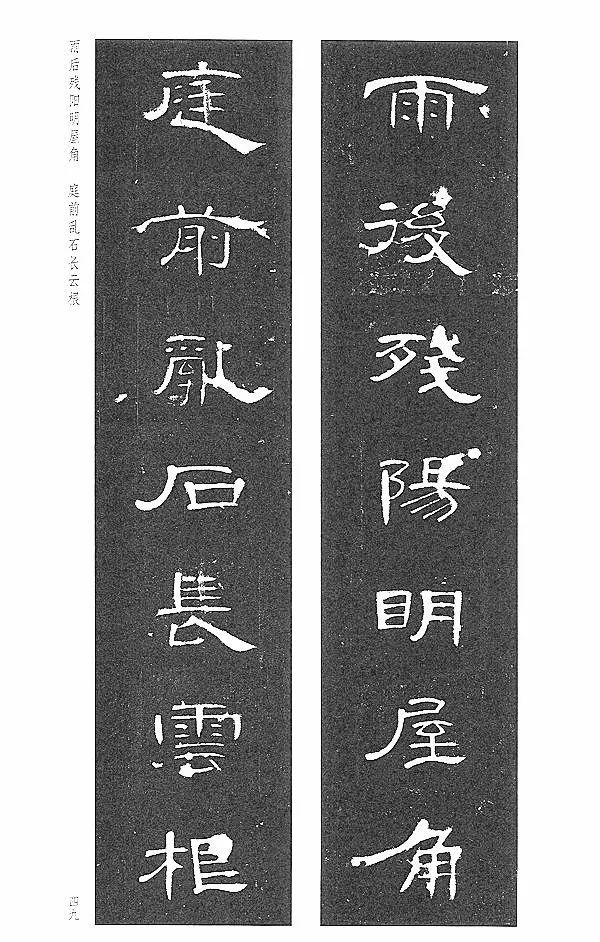 雨後殘陽明屋角
庭前亂石長雲根
雨后残阳明屋角 庭前乱石长云根
四九